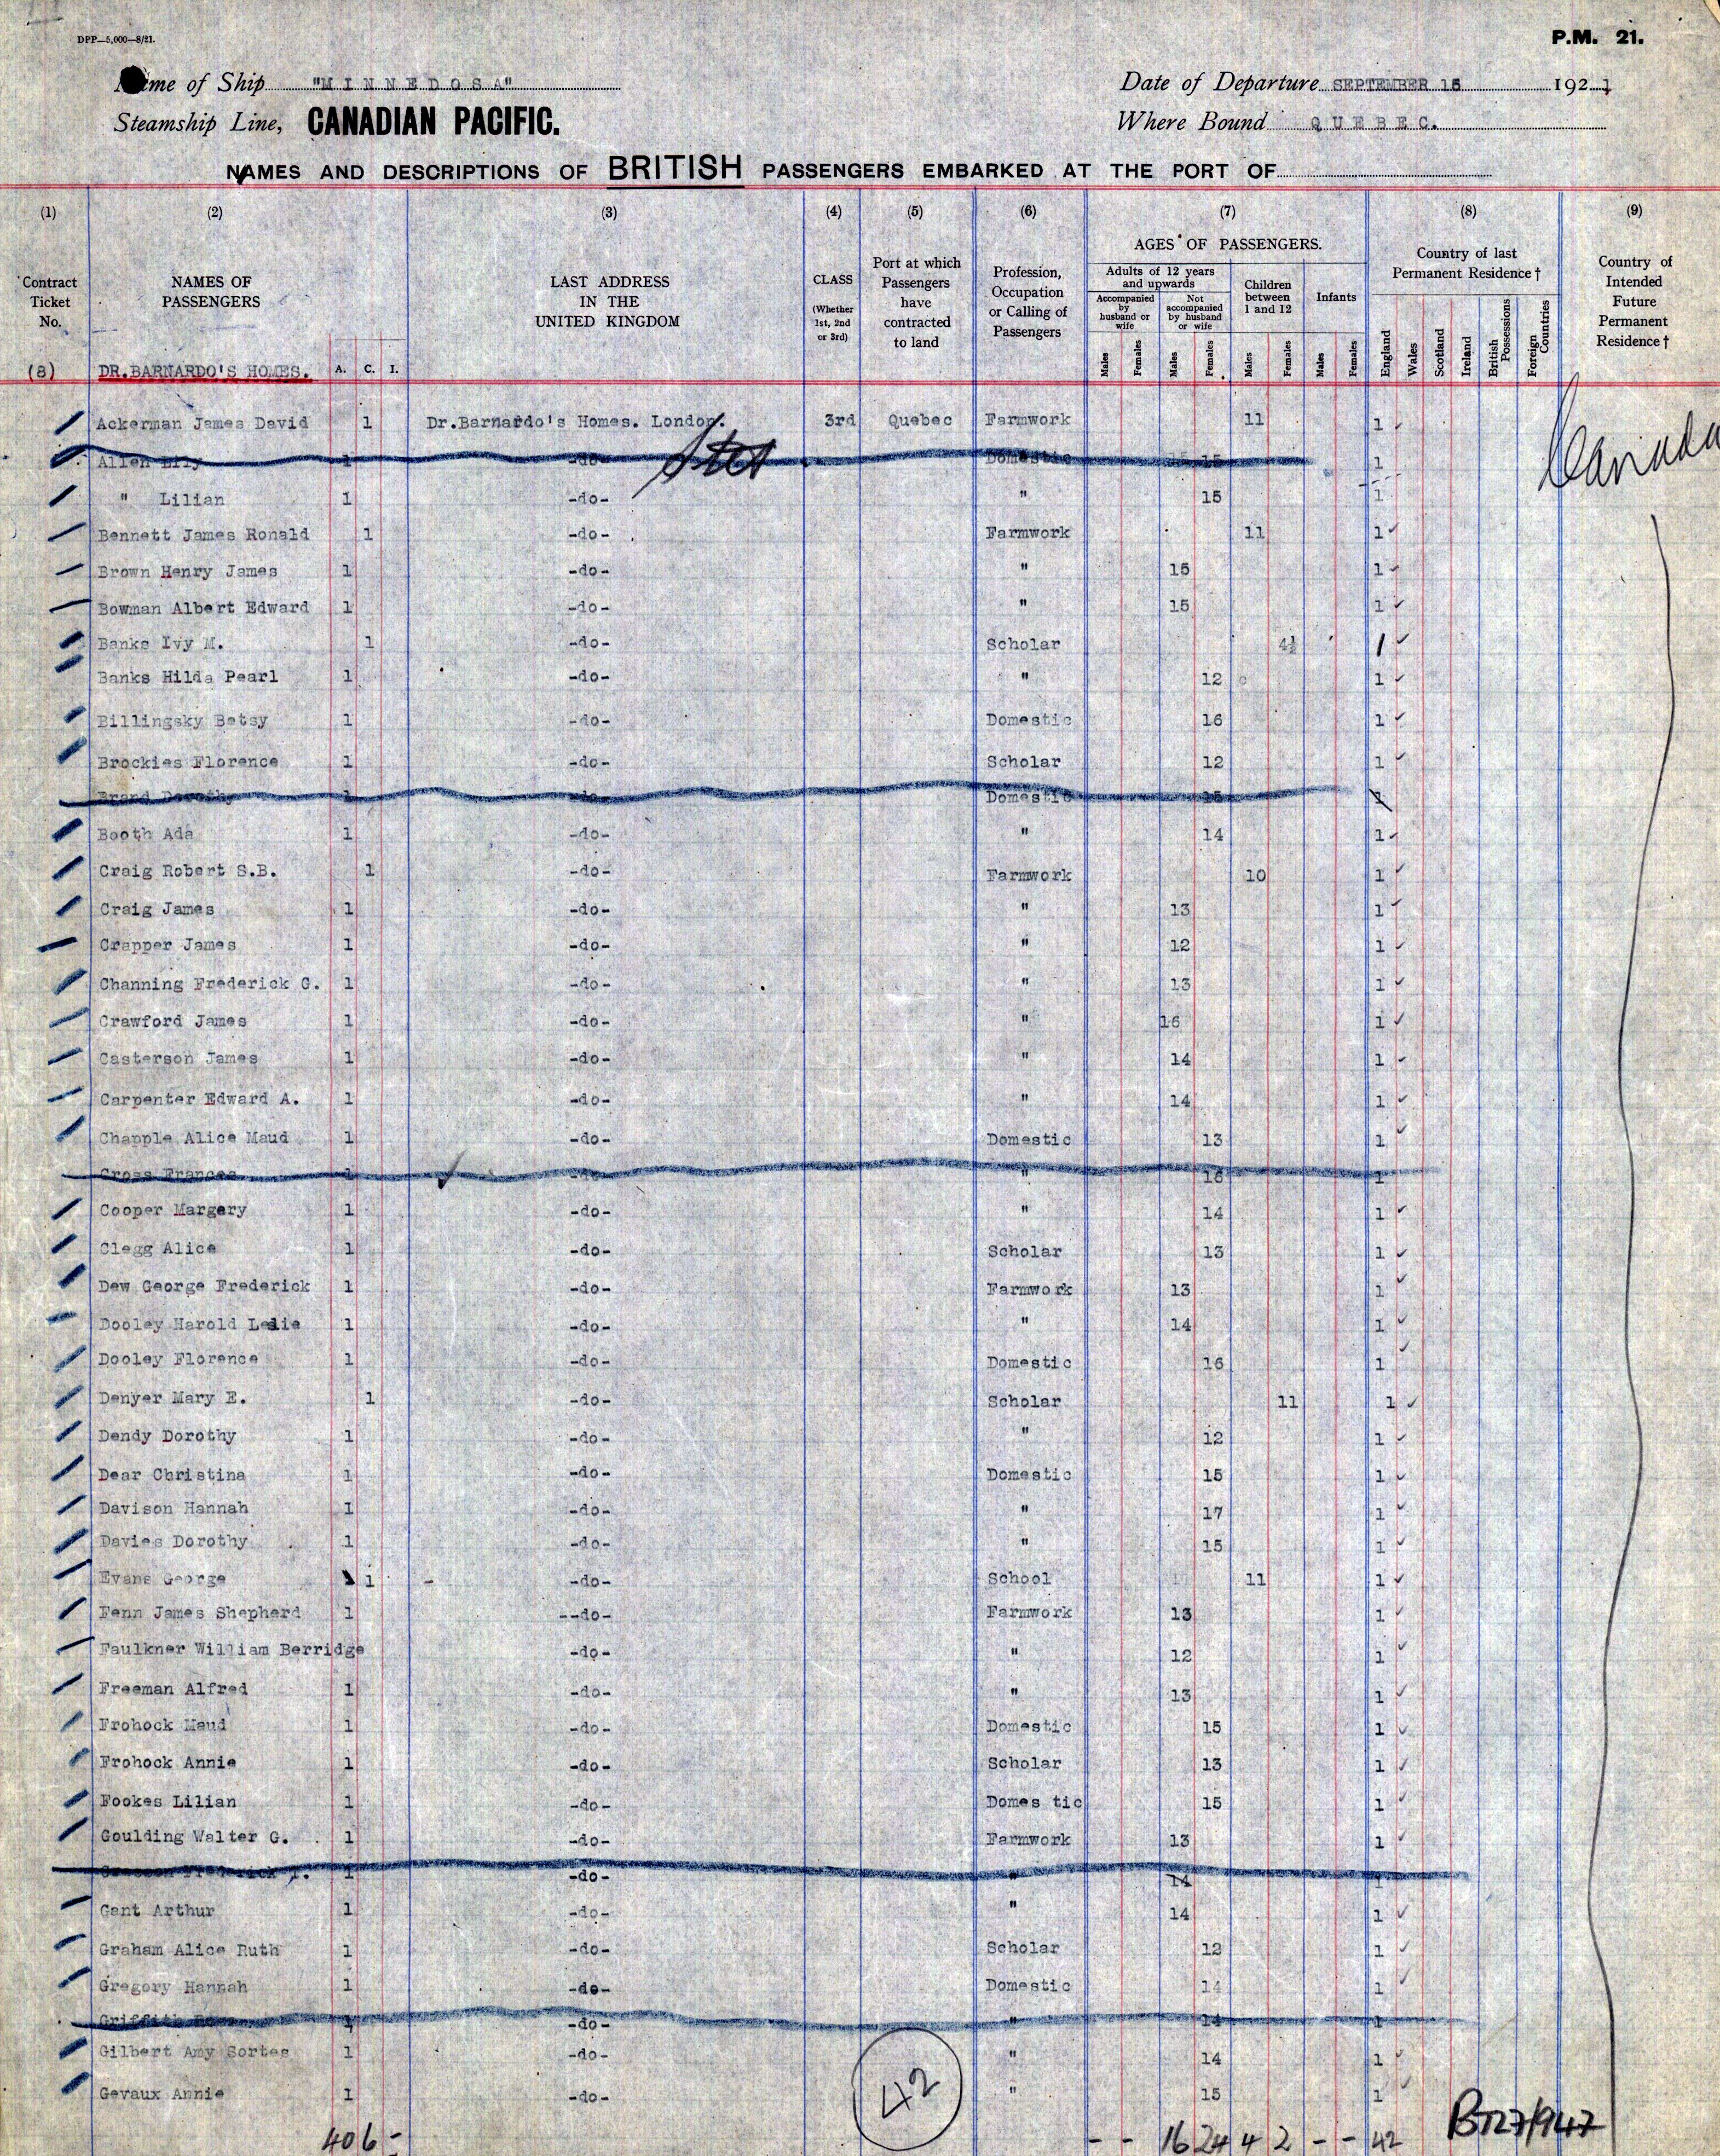 DPP—5,000—8/21.
P.M. 21.
me of Ship "MINNEDOSA" Date of Departure SEPTEMBER 15 1921
Steamship Line, CANADIAN PACIFIC. Where Bound QUEBEC.
NAMES AND DESCRIPTIONS OF BRITISH PASSENGERS EMBARKED AT THE PORT OF
(1) (2) (3) (4) (5) (6) (7) (8) (9)
Contract Ticket No. NAMES OF PASSENGERS LAST ADDRESS IN THE UNITED KINGDOM CLASS (Whether 1st, 2nd or 3rd) Port at which Passengers have contracted to land Profession, Occupation or Calling of Passengers AGES OF PASSENGERS. Country of last Permanent Residence † Country of Intended Future Permanent Residence †
Adults of 12 years and upwards Children between 1 and 12 Infants
Accompanied by husband or wife Not accompanied by husband or wife
Males Females Males Females Males Females Males Females England Wales Scotland Ireland British Possessions Foreign Countries
(8) DR.BARNARDO'S HOMES. A. C. I.
Ackerman James David 1 Dr.Barnardo's Homes. London. 3rd Quebec Farmwork 11 1 Canada
Allen Lily 1 -do- Stet Domestic 15 1
" Lilian 1 -do- " 15 1
Bennett James Ronald 1 -do- Farmwork 11 1
Brown Henry James 1 -do- " 15 1
Bowman Albert Edward 1 -do- " 15 1
Banks Ivy M. 1 -do- Scholar 4½ 1
Banks Hilda Pearl 1 -do- " 12 1
Billingsky Betsy 1 -do- Domestic 16 1
Brockies Florence 1 -do- Scholar 12 1
Brand Dorothy 1 -do- Domestic 15 1
Booth Ada 1 -do- " 14 1
Craig Robert S.B. 1 -do- Farmwork 10 1
Craig James 1 -do- " 13 1
Crapper James 1 -do- " 12 1
Channing Frederick G. 1 -do- " 13 1
Crawford James 1 -do- " 16 1
Casterson James 1 -do- " 14 1
Carpenter Edward A. 1 -do- " 14 1
Chapple Alice Maud 1 -do- Domestic 13 1
Cross Frances 1 -do- " 16 1
Cooper Margery 1 -do- " 14 1
Clegg Alice 1 -do- Scholar 13 1
Dew George Frederick 1 -do- Farmwork 13 1
Dooley Harold Leslie 1 -do- " 14 1
Dooley Florence 1 -do- Domestic 16 1
Denyer Mary E. 1 -do- Scholar 11 1
Dendy Dorothy 1 -do- " 12 1
Dear Christina 1 -do- Domestic 15 1
Davison Hannah I -do- " 17 1
Davies Dorothy 1 -do- " 15 1
Evans George 1 -do- School 11 1
Fenn James Shepherd 1 --do- Farmwork 13 1
Faulkner William Berridge -do- " 12 1
Freeman Alfred 1 -do- " 13 1
Frohock Maud 1 -do- Domestic 15 1
Frohock Annie 1 -do- Scholar 13 1
Fookes Lilian 1 -do- Domes tic 15 1
Goulding Walter G. 1 -do- Farmwork 13 1
Frederick 1 -do- " 14 1
Gent Arthur 1 -do- " 14 1
Graham Alice Ruth 1 -do- Scholar 12 1
Gregory Hannah 1 -do- Domestic 14 1
Griffith 1 -do- " 14 1
Gilbert Amy Sortes 1 -do- " 14 1
Gevaux Annie 1 -do- " 15 1
42
BT27/947
40 6 - - - 16 24 4 2 - - 42